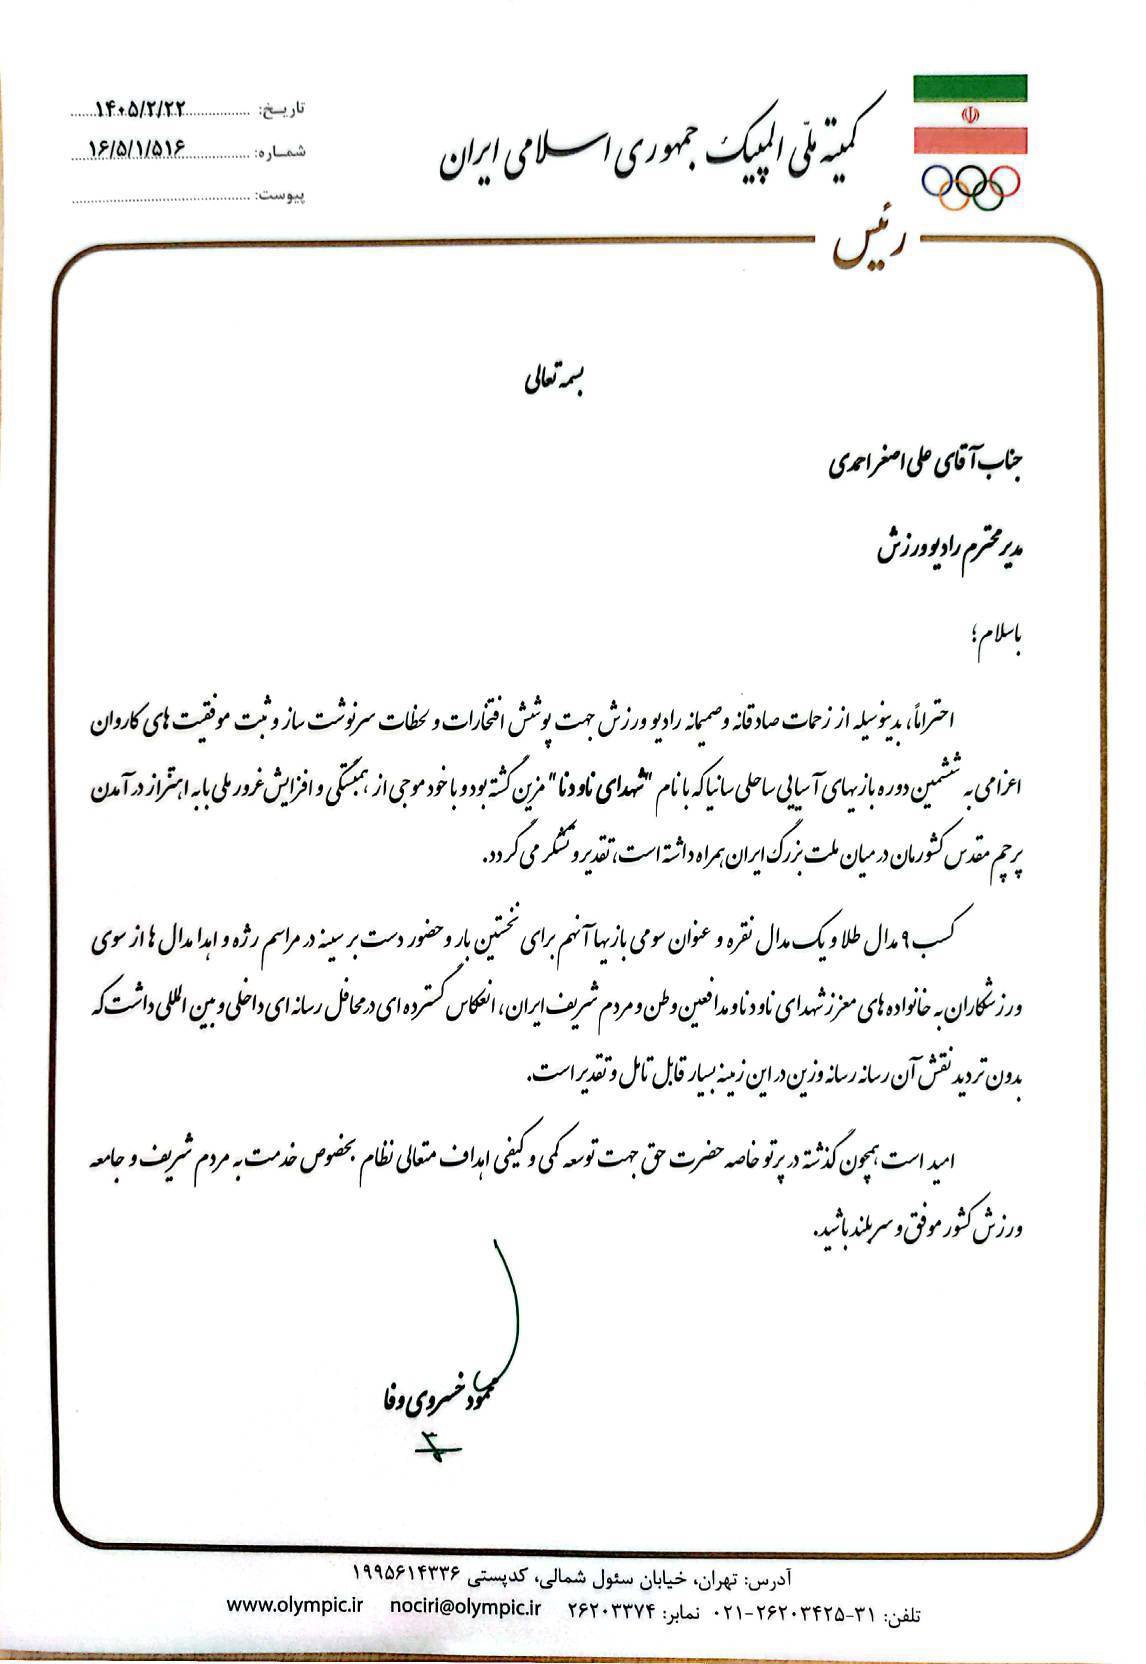 کمیته ملّی المپیک جمهوری اسلامی ایران
رئیس
تاریخ: ۱۴۰۵/۲/۲۲
شماره: ۱۶/۵/۱/۵۱۶
پیوست:
بسمه تعالی
جناب آقای علی اصغر احمدی
مدیر محترم رادیو ورزش
باسلام؛
احتراماً، بدینوسیله از زحمات صادقانه و صمیمانه رادیو ورزش جهت پوشش افتخارات و لحظات سرنوشت ساز و ثبت موفقیت های کاروان
اعزامی به ششمین دوره بازیهای آسیایی ساحلی سانیا که با نام "شهدای ناو دنا" مزین گشته بود و با خود موجی از همبستگی و افزایش غرور ملی با به اهتزاز در آمدن
پرچم مقدس کشورمان در میان ملت بزرگ ایران همراه داشته است، تقدیر و تشکر می گردد.
کسب ۹ مدال طلا و یک مدال نقره و عنوان سومی بازیها آنهم برای نخستین بار و حضور دست بر سینه در مراسم رژه و اهدا مدال ها از سوی
ورزشکاران به خانواده های معزز شهدای ناو دنا و مدافعین وطن و مردم شریف ایران، انعکاس گسترده ای در محافل رسانه ای داخلی و بین المللی داشت که
بدون تردید نقش آن رسانه رسانه وزین در این زمینه بسیار قابل تامل و تقدیر است.
امید است همچون گذشته در پرتو خاصه حضرت حق جهت توسعه کمی و کیفی اهداف متعالی نظام بخصوص خدمت به مردم شریف و جامعه
ورزش کشور موفق و سربلند باشید.
محمود خسروی وفا
آدرس: تهران، خیابان سئول شمالی، کدپستی ۱۹۹۵۶۱۴۳۳۶
تلفن: ۳۱-۲۶۲۰۳۴۲۵-۰۲۱ نمابر: ۲۶۲۰۳۳۷۴ nociri@olympic.ir www.olympic.ir